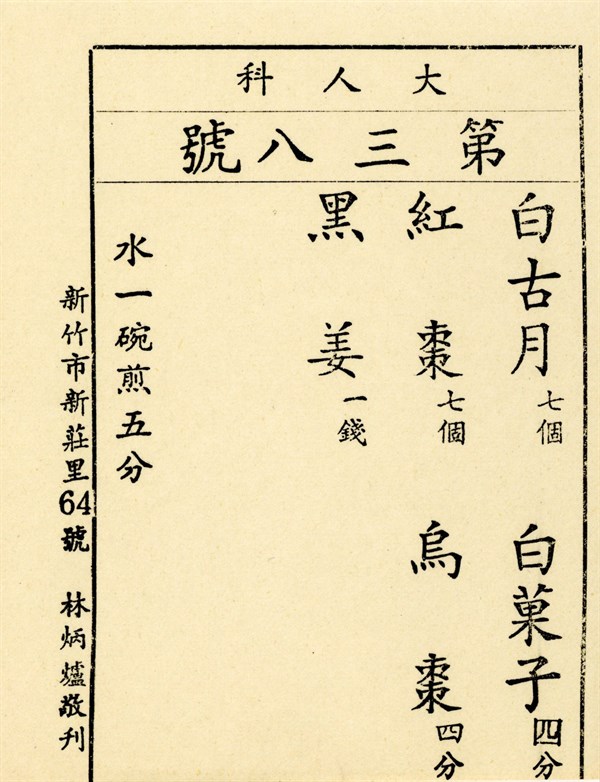 大人科
第三八號
白古月七個 白菓子四分
紅棗七個 烏棗四分
黑姜一錢
水一碗煎五分
新竹市新莊里64號 林炳爐敬刊